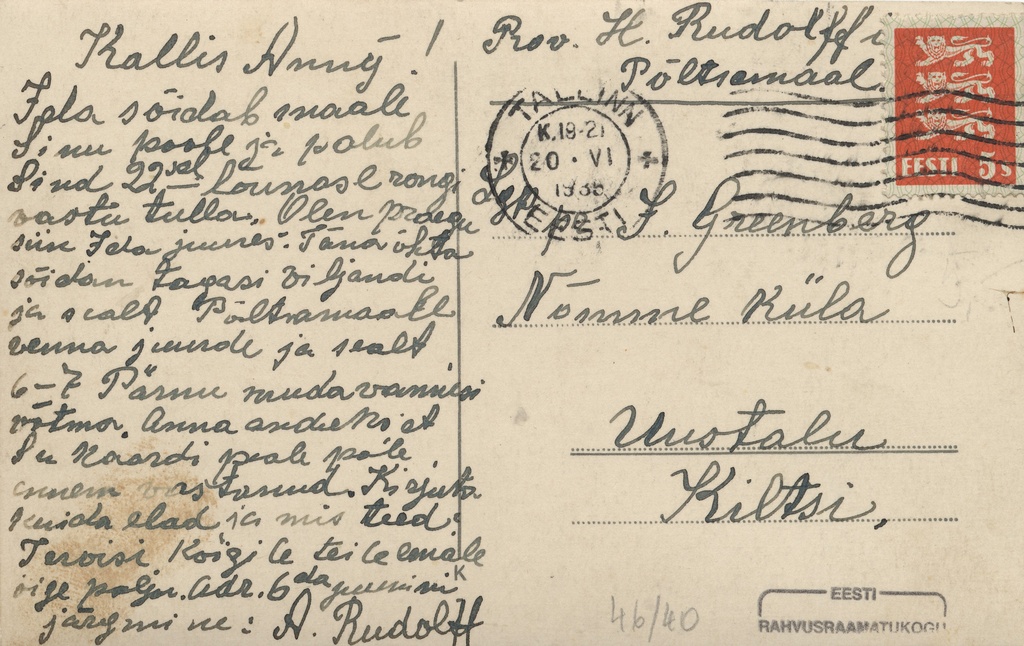 Kallis Anny!
Ida sõidab maale
Sinu poole ja palub
Sind 22sel lõunasel rongi
vastu tulla. Olen praegu
siin Ida juures. Täna õhta
sõidan tagasi Viljandi
ja sealt Põltsamaale
venna juurde ja sealt
6-7 Pärnu mudavannisi
võtma. Anna andeks et
Su kaardi peale pole
ennem vastanud. Kirjuta
kuida elad ja mis teed.
Tervisi Kõigile teile emale
õige palju. Adr. 6da juunini
järgmine: A. Rudolff
Prov. H. Rudolff i
Põltsamaal.
TALLINN
K.19-21
20 · VI
1935
EESTI
EESTI 5 s
J. Greenberg
Nõmme Küla
Uuetalu
Kiltsi,
K
46/40
EESTI
RAHVUSRAAMATUKOGU